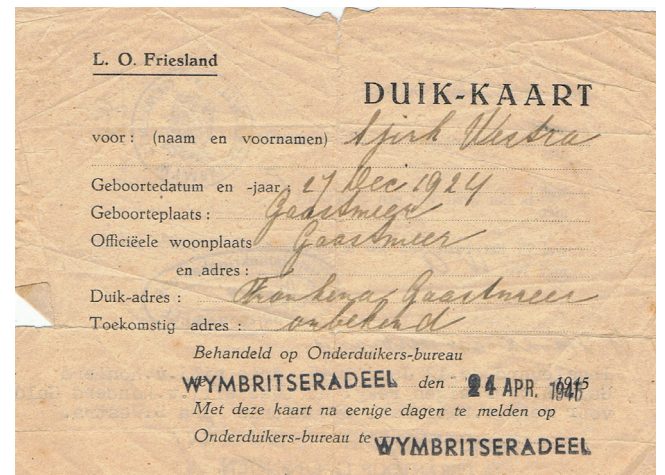 L. O. Friesland
DUIK-KAART
voor: (naam en voornamen) Sjirk Westra
Geboortedatum en -jaar: 27 Dec 1924
Geboorteplaats: Gaastmeer
Officiëele woonplaats Gaastmeer
en adres:
Duik-adres: Frankena Gaastmeer
Toekomstig adres: onbekend
Behandeld op Onderduikers-bureau
te WYMBRITSERADEEL den 24 APR. 1945
Met deze kaart na eenige dagen te melden op
Onderduikers-bureau te WYMBRITSERADEEL